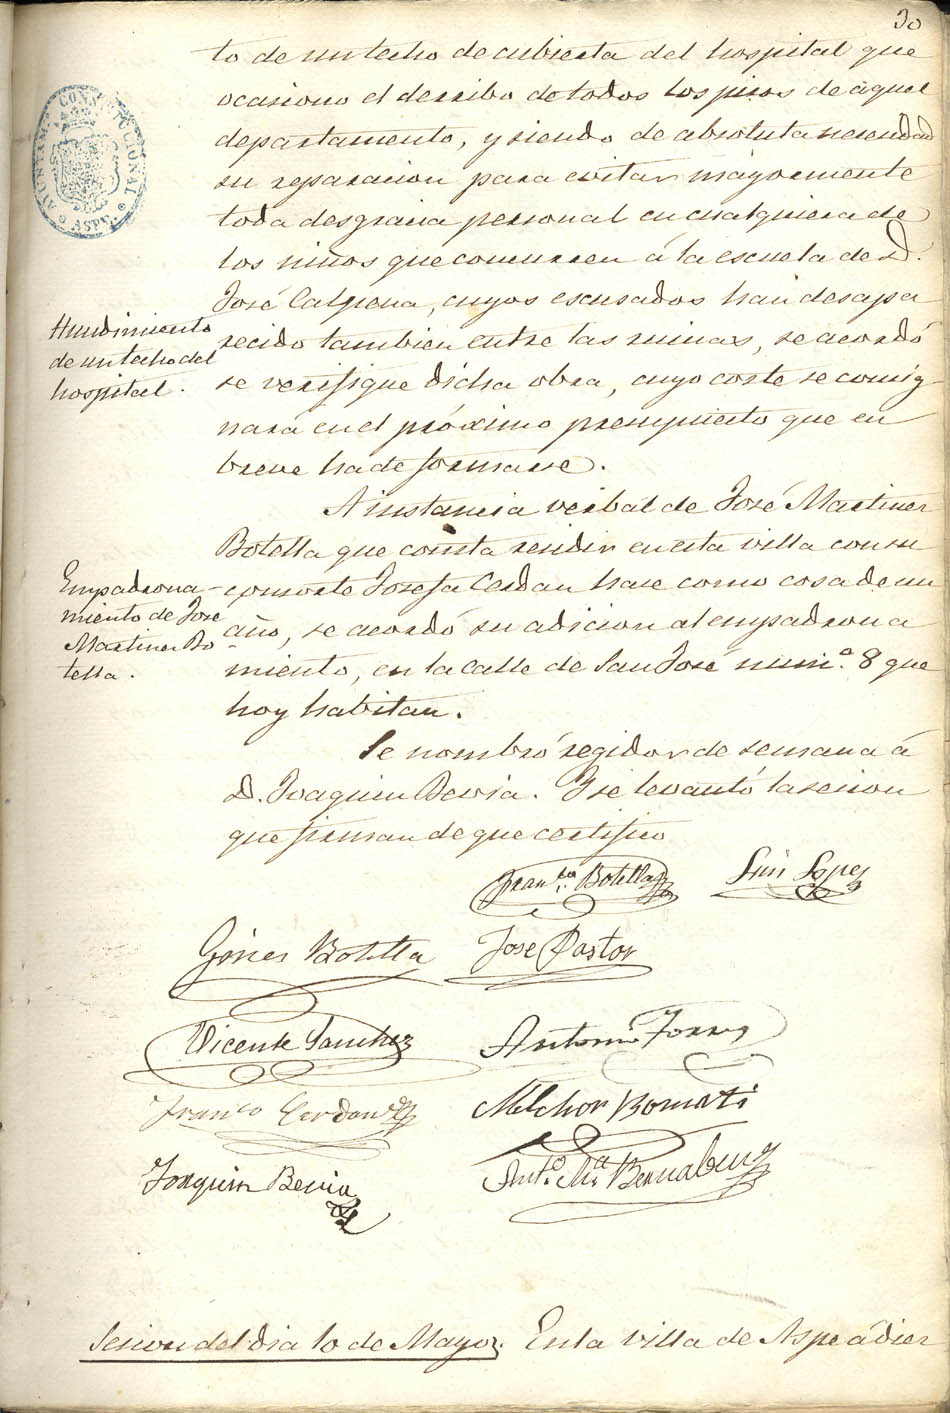 30
AYUNTAM.TO CONSTITUCIONAL
ASPE.
to de un techo de cubierta del hospital que
ocasiono el derribo de todos los pisos de aquel
departamento, y siendo de absoluta necesidad
su reparacion para evitar mayormente
toda desgracia personal en cualquiera de
los niños que concurren á la escuela de D.
José Calpena, cuyos escusados han desapa
recido tambien entre las ruinas, se acordó
se verifique dicha obra, cuyo coste se consig
nará en el próximo presupuesto que en
breve ha de formarse.
Hundimiento
de un techo del
hospital.
A instancia verbal de José Martinez
Botella que consta residir en esta villa con su
consorte Josefa Cerdan hace como cosa de un
año, se acordó su adicion al empadrona
miento, en la Calle de San José num.º 8 que
hoy habitan.
Empadrona-
miento de Jose
Martinez Bo
tella.
Se nombró regidor de semana á
D. Joaquin Bevia. Y se levantó la sesion
que firman de que certifico
Fran.co Botella
Luis Lopez
Gines Botella
Jose Pastor
Vicente Sanchez
Antonio Torres
Fran.co Cerdan
Melchor Bonati
Joaquin Bevia
Ant.º M.ª Bernabeu
Sesion del dia 10 de Mayo. En la villa de Aspe á diez